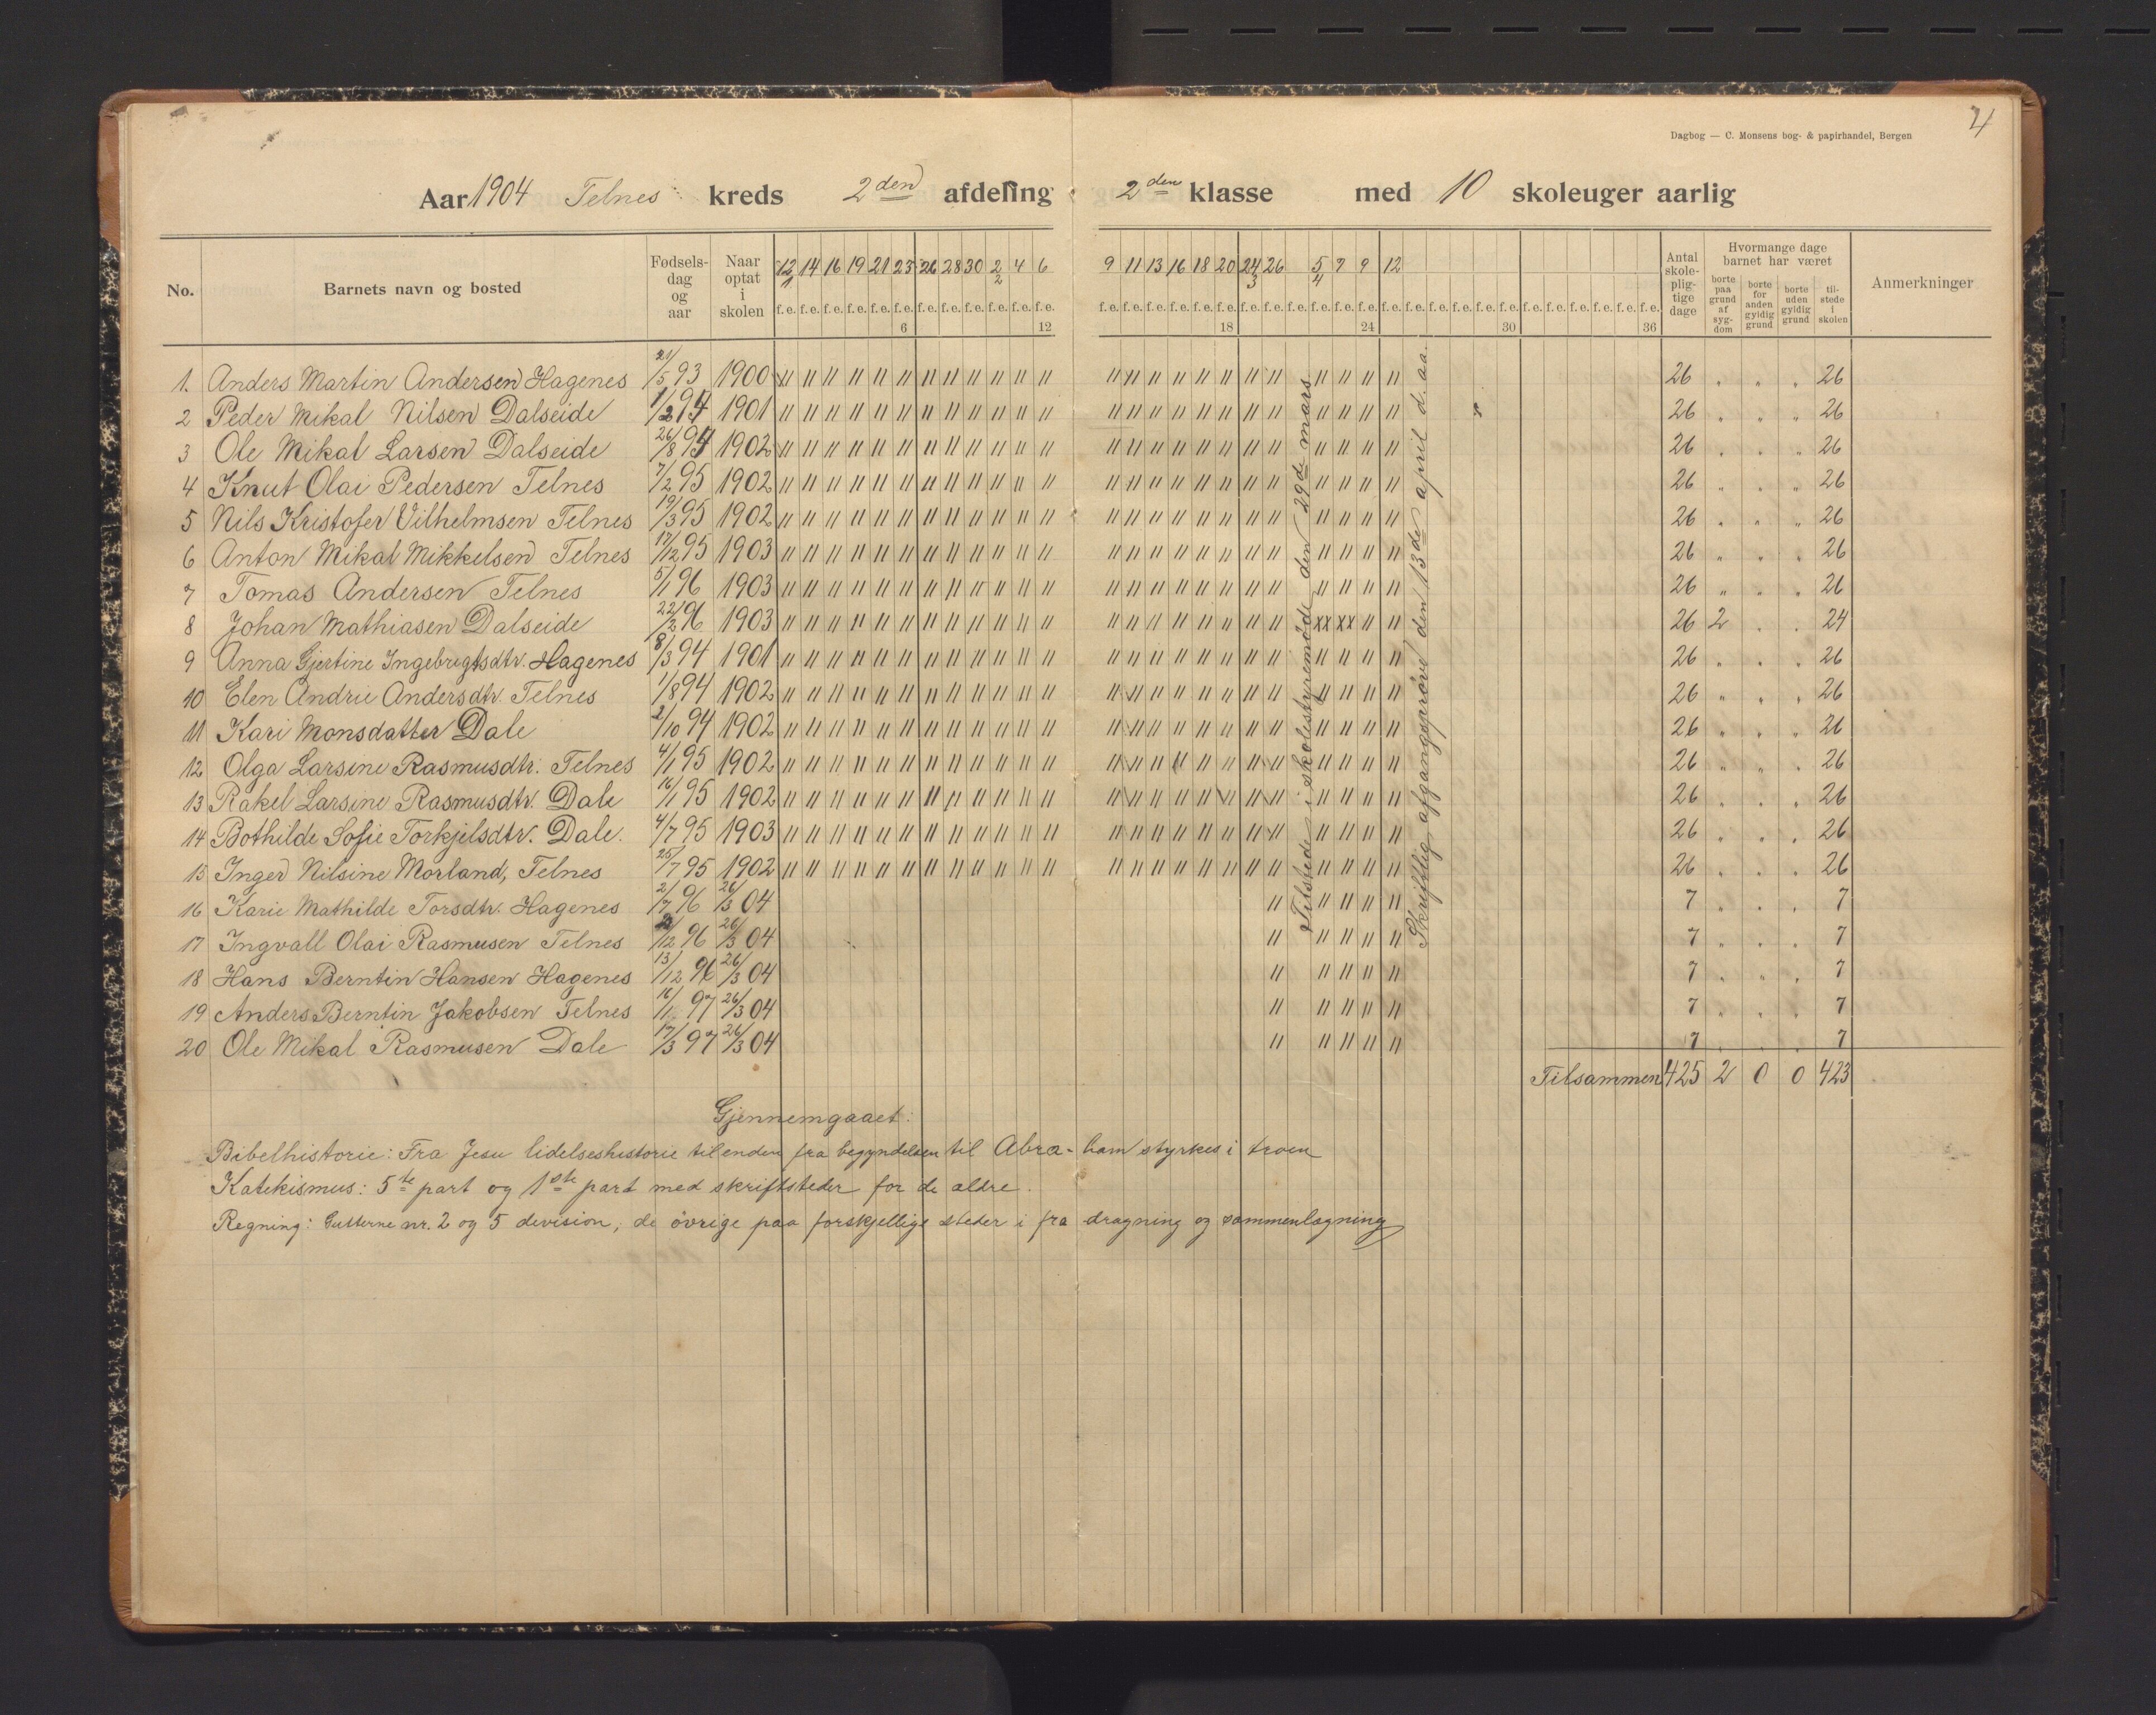 4
Dagbog — C. Monsens bog- & papirhandel, Bergen
Aar 1904 Telnes kreds 2den afdeling 2den klasse med 10 skoleuger aarlig
No. Barnets navn og bosted Fødselsdag og aar Naar optat i skolen 12/1 14 16 19 21 23 26 28 30 2/2 4 6 9 11 13 16 18 20 24/3 26 5/4 7 9 12 Antal skolepligtige dage Hvormange dage barnet har været borte paa grund af sygdom borte for anden gyldig grund borte uden gyldig grund tilstede i skolen Anmerkninger
f.e. f.e. f.e. f.e. f.e. f.e. f.e. f.e. f.e. f.e. f.e. f.e. f.e. f.e. f.e. f.e. f.e. f.e. f.e. f.e. f.e. f.e. f.e. f.e. f.e. f.e. f.e. f.e. f.e. f.e. f.e. f.e. f.e. f.e. f.e. f.e.
6 12 18 24 30 36
1. Anders Martin Andersen Hagenes 21/5 93 1900 26 " " " 26
2 Peder Mikal Nilsen Dalseide 1/2 94 1901 26 " " " 26
3 Ole Mikal Larsen Dalseide 26/8 94 1902 26 " " " 26
4 Knut Olai Pedersen Telnes 7/2 95 1902 26 " " " 26
5 Nils Kristofer Vilhelmsen Telnes 19/3 95 1902 26 " " " 26
6 Anton Mikal Mikkelsen Telnes 17/12 95 1903 26 " " " 26
7 Tomas Andersen Telnes 5/1 96 1903 26 " " " 26
8 Johan Mathiasen Dalseide 22/2 96 1903 xx xx 26 2 " " 24
9 Anna Gjertine Ingebrigtsdtr. Hagenes 8/3 94 1901 26 " " " 26
10 Elen Andrie Andersdtr. Telnes 1/8 94 1902 26 " " " 26
11 Kari Monsdatter Dale 2/10 94 1902 26 " " " 26
12 Olga Larsine Rasmusdtr. Telnes 4/1 95 1902 26 " " " 26
13 Rakel Larsine Rasmusdtr. Dale 16/1 95 1902 26 " " " 26
14 Bothilde Sofie Torkjelsdtr. Dale. 4/7 95 1903 26 " " " 26
15 Inger Nilsine Morland, Telnes 25/7 95 1902 26 " " " 26
16 Karie Mathilde Torsdtr. Hagenes 2/7 96 26/3 04 7 " " " 7
17 Ingvall Olai Rasmusen Telnes /12 96 26/3 04 7 " " " 7
18 Hans Berntin Hansen Hagenes 13/12 96 26/3 04 7 " " " 7
19 Anders Berntin Jakobsen Telnes 16/1 97 26/3 04 7 " " " 7
20 Ole Mikal Rasmusen Dale 17/3 97 26/3 04 7 " " " 7
Tilstede i skolestyremöde den 29de mars
Skriftlig afgangspröve den 13de april d. aa.
Tilsammen 425 2 0 0 423
Gjennemgaaet:
Bibelhistorie: Fra Jesu lidelseshistorie til enden, fra begyndelsen til Abraham styrkes i troen
Katekismus: 5te part og 1ste part med skriftsteder for de ældre.
Regning: Gutterne nr. 2 og 5 division, de övrige paa forskjellige steder i fradragning og sammenlægning